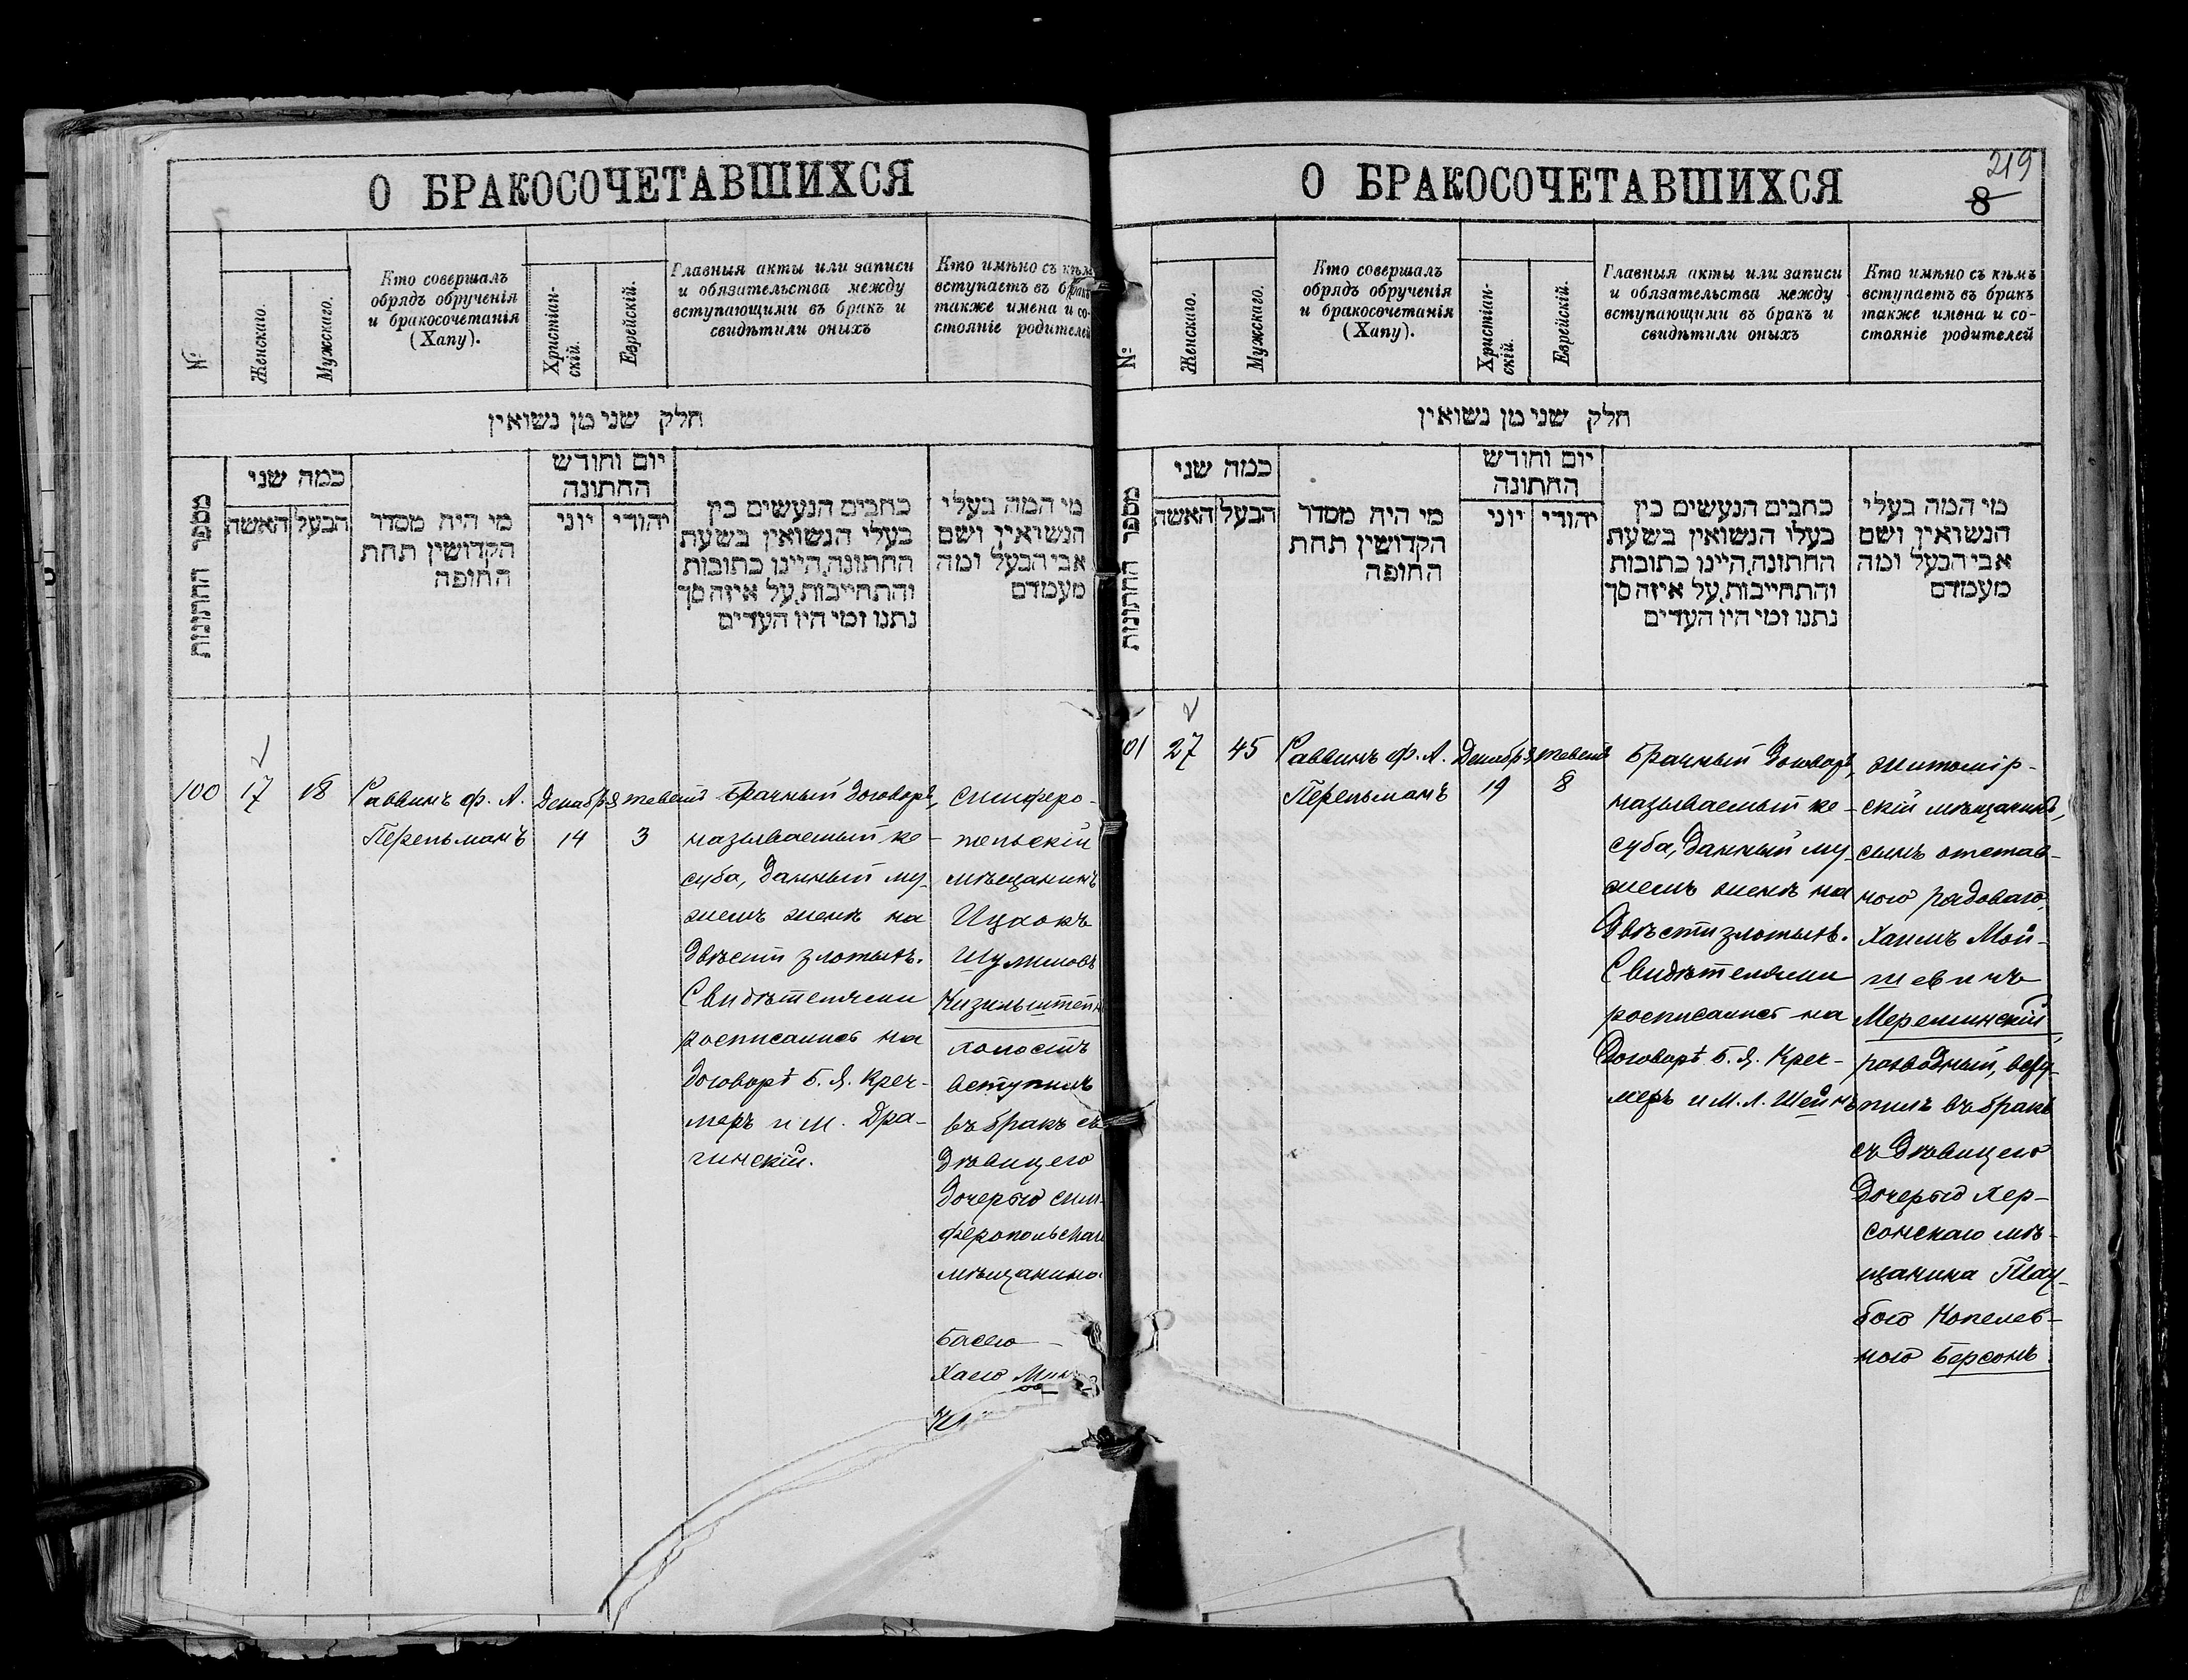 О БРАКОСОЧЕТАВШИХСЯ
№
Женскаго.
Мужескаго.
Кто совершалъ
обрядъ обрученія
и бракосочетанія
(Хапу).
Христіан-
скій.
Еврейскій.
Главныя акты или записи
и обязательства между
вступающими въ бракъ и
свидѣтили оныхъ
Кто имѣно съ кѣмъ
вступаетъ въ бракъ
также имена и со-
стояніе родителей
חלק שני מן נשואין
מספר החתונות
כמה שני
האשה
הבעל
מי היה מסדר
הקדושין תחת
החופה
יום וחודש
החתונה
יוני
יהודי
כתבים הנעשים בין
בעלי הנשואין בשעת
החתונה, היינו כתובות
והתחייבות, על איזה סך
נתנו ומי היו העדים
מי המה בעלי
הנשואין ושם
אבי הבעל ומה
מעמדם
100
17
18
Раввинъ Ф. А.
Перельманъ
Декабря
14
тевета
3
Брачный договоръ,
называемый ке-
суба, данный му-
жемъ женѣ на
двѣсти злотыхъ.
Свидѣтелями
росписались на
договорѣ Б. Я. Креч-
меръ и М. Дра-
гинскій.
Симферо-
польскій
мѣщанинъ
Ицхокъ
Шулимовъ
Кизильштейн
холостъ
вступилъ
въ бракъ съ
дѣвицею
дочерью сим-
феропольскаг
мѣщанина
Басею-
Хаею
О БРАКОСОЧЕТАВШИХСЯ
219
8
№
Женскаго.
Мужскаго.
Кто совершалъ
обрядъ обрученія
и бракосочетанія
(Хапу).
Христіан-
скій.
Еврейскій.
Главныя акты или записи
и обязательства между
вступающими въ бракъ и
свидѣтили оныхъ
Кто имѣно съ кѣмъ
вступаетъ въ бракъ
также имена и со-
стояніе родителей
חלק שני מן נשואין
מספר החתונות
כמה שני
האשה
הבעל
מי היה מסדר
הקדושין תחת
החופה
יום וחודש
החתונה
יוני
יהודי
כתבים הנעשים בין
בעלו הנשואין בשעת
החתונה, היינו כתובות
והתחייבות, על איזה סך
נתנו ומי היו העדים
מי המה בעלי
הנשואין ושם
אבי הבעל ומה
מעמדם
101
27
45
Раввинъ Ф. А.
Перельманъ
Декабря
19
тевета
8
Брачный договоръ,
называемый ке-
суба, данный му-
жемъ женѣ на
двѣсти злотыхъ.
Свидѣтелями
росписались на
договорѣ Б. Я. Креч-
меръ и М. Л. Шейнъ
Житомір-
скій мѣщанинъ,
сынъ отстав-
ного рядоваго,
Хаимъ Мой-
шевичъ
Мереминскій,
разводный, всту-
пилъ въ бракъ
съ дѣвицею
дочерью хер-
сонскаго мѣ-
щанина Тау-
бою Копелев-
ною Берсонъ